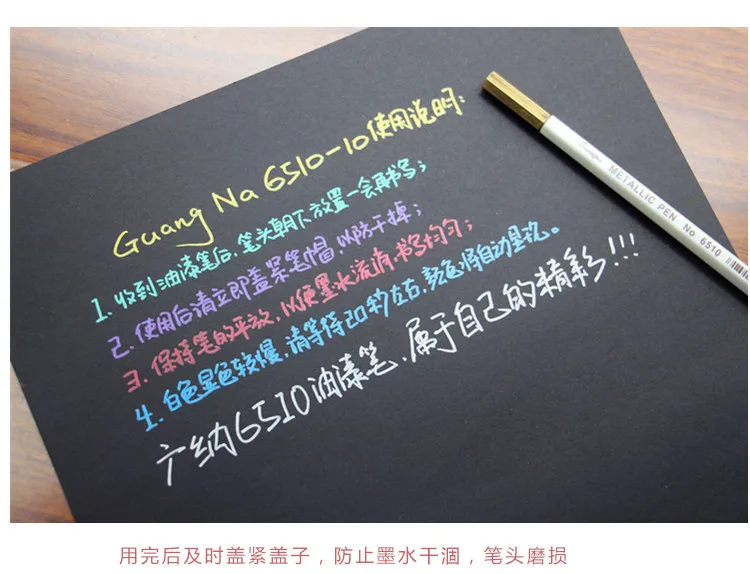 Guang Na 6510-10使用说明:
1.收到油漆笔后,笔头朝下放置一会再书写;
2.使用后请立即盖紧笔帽,以防干掉;
3.保持笔的平放,以便墨水流淌书写均匀;
4.白色显色较慢,请等待20秒左右,颜色将自动显现。
广纳6510油漆笔,属于自己的精彩!!!
METALLIC PEN No 6510
用完后及时盖紧盖子，防止墨水干涸，笔头磨损